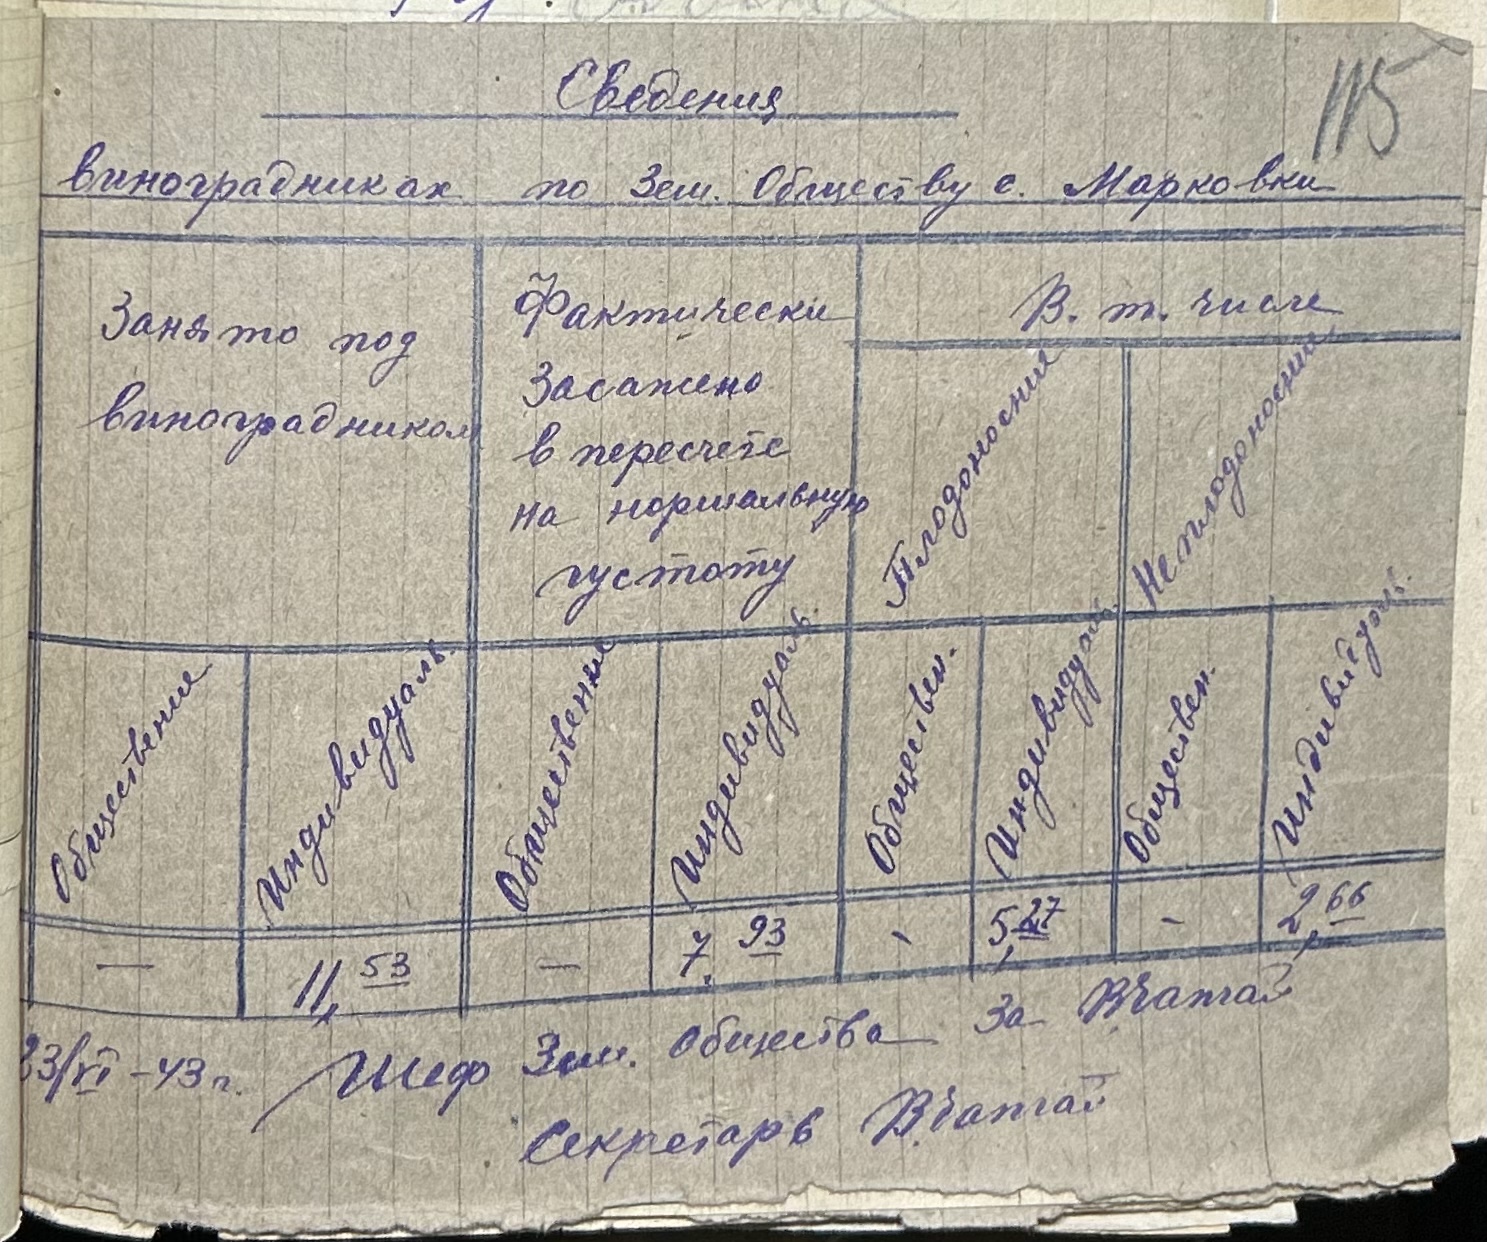 115
Сведения
виноградниках по Зем. Обществу с. Марковки
Занято под
виноградником
Фактически
Засажено
в пересчете
на нормальную
густоту
В. т. числе
Плодоносние
Неплодоносние
Общественние
Индивидуаль.
Общественние
Индивидуаль.
Обществен.
Индивидуаль.
Обществен.
Индивидуаль.
— 11,53 — 7.93 - 5,27 - 2,66
23/VI-43 г. Шеф Зем. Общества За
Секретарь